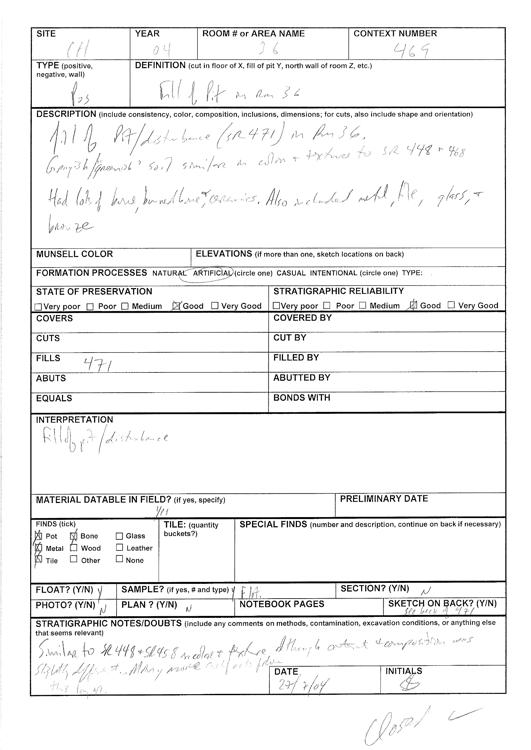 SITE YEAR ROOM # or AREA NAME CONTEXT NUMBER
CH 04 36 469
TYPE (positive, negative, wall) DEFINITION (cut in floor of X, fill of pit Y, north wall of room Z, etc.)
Pos Fill of Pit in Rm 36
DESCRIPTION (include consistency, color, composition, inclusions, dimensions; for cuts, also include shape and orientation)
Fill of Pit/disturbance (SR 471) in Rm 36.
Grayish/greenish soil similar in color + textures to SR 448 + 468
Had lots of bone, burned bone, + ceramics. Also included metal, tile, glass, +
bronze
MUNSELL COLOR ELEVATIONS (if more than one, sketch locations on back)
FORMATION PROCESSES NATURAL ARTIFICIAL (circle one) CASUAL INTENTIONAL (circle one) TYPE:
STATE OF PRESERVATION STRATIGRAPHIC RELIABILITY
Very poor Poor Medium Good Very Good Very poor Poor Medium Good Very Good
COVERS COVERED BY
CUTS CUT BY
FILLS 471 FILLED BY
ABUTS ABUTTED BY
EQUALS BONDS WITH
INTERPRETATION
Fill of pit/disturbance
MATERIAL DATABLE IN FIELD? (if yes, specify) PRELIMINARY DATE
FINDS (tick) TILE: (quantity buckets?) SPECIAL FINDS (number and description, continue on back if necessary)
Pot Bone Glass
Metal Wood Leather
Tile Other None
FLOAT? (Y/N) Y SAMPLE? (if yes, # and type) Y Flot. SECTION? (Y/N) N
PHOTO? (Y/N) N PLAN ? (Y/N) N NOTEBOOK PAGES SKETCH ON BACK? (Y/N)
see back of 471
STRATIGRAPHIC NOTES/DOUBTS (include any comments on methods, contamination, excavation conditions, or anything else that seems relevant)
Similar to SR 448 + SR 458 in color + texture although content + composition was
slightly different. Many more artifacts from
this layer.
DATE INITIALS
27/7/04
Closed